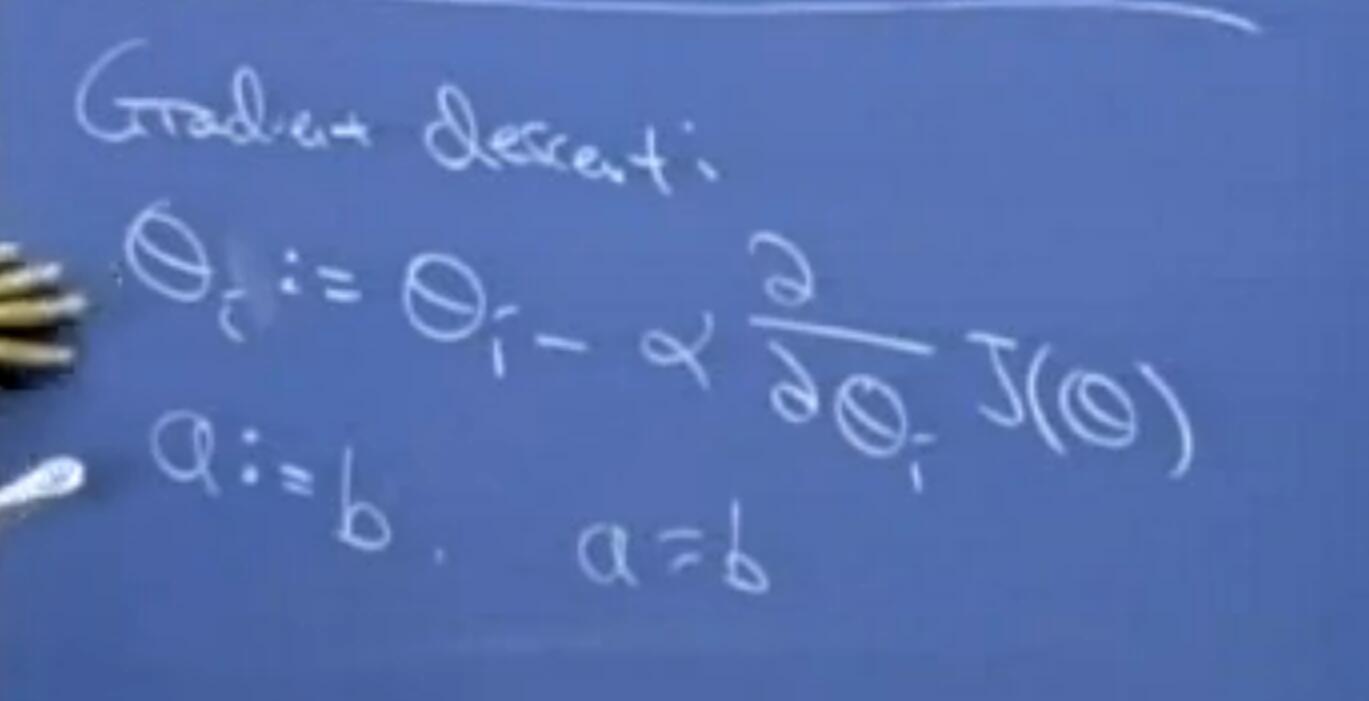 Gradient descent:
θᵢ := θᵢ - α ∂/∂θᵢ J(θ)
a := b. a = b